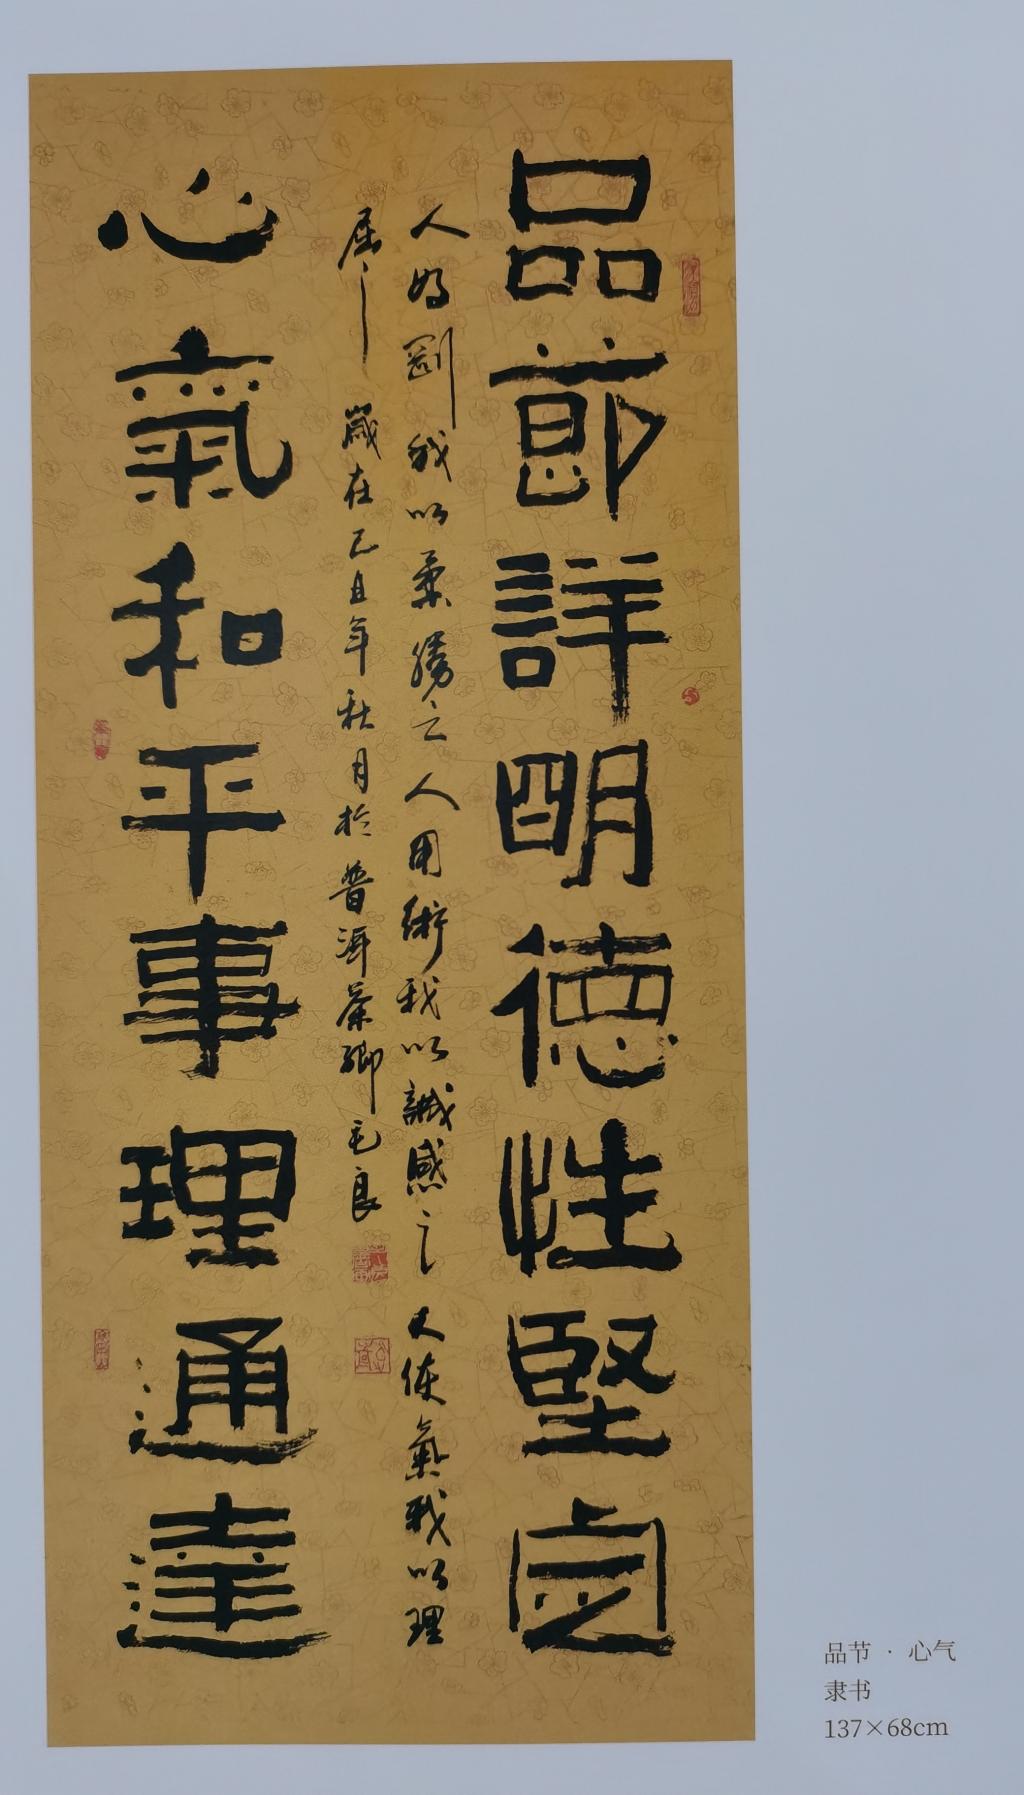 品節詳明德性堅定
人好剛我以柔勝之人用術我以誠感之人使氣我以理
屈之歲在己丑年秋月於普洱茶鄉毛良
心氣和平事理通達
品节 · 心气
隶书
137×68cm